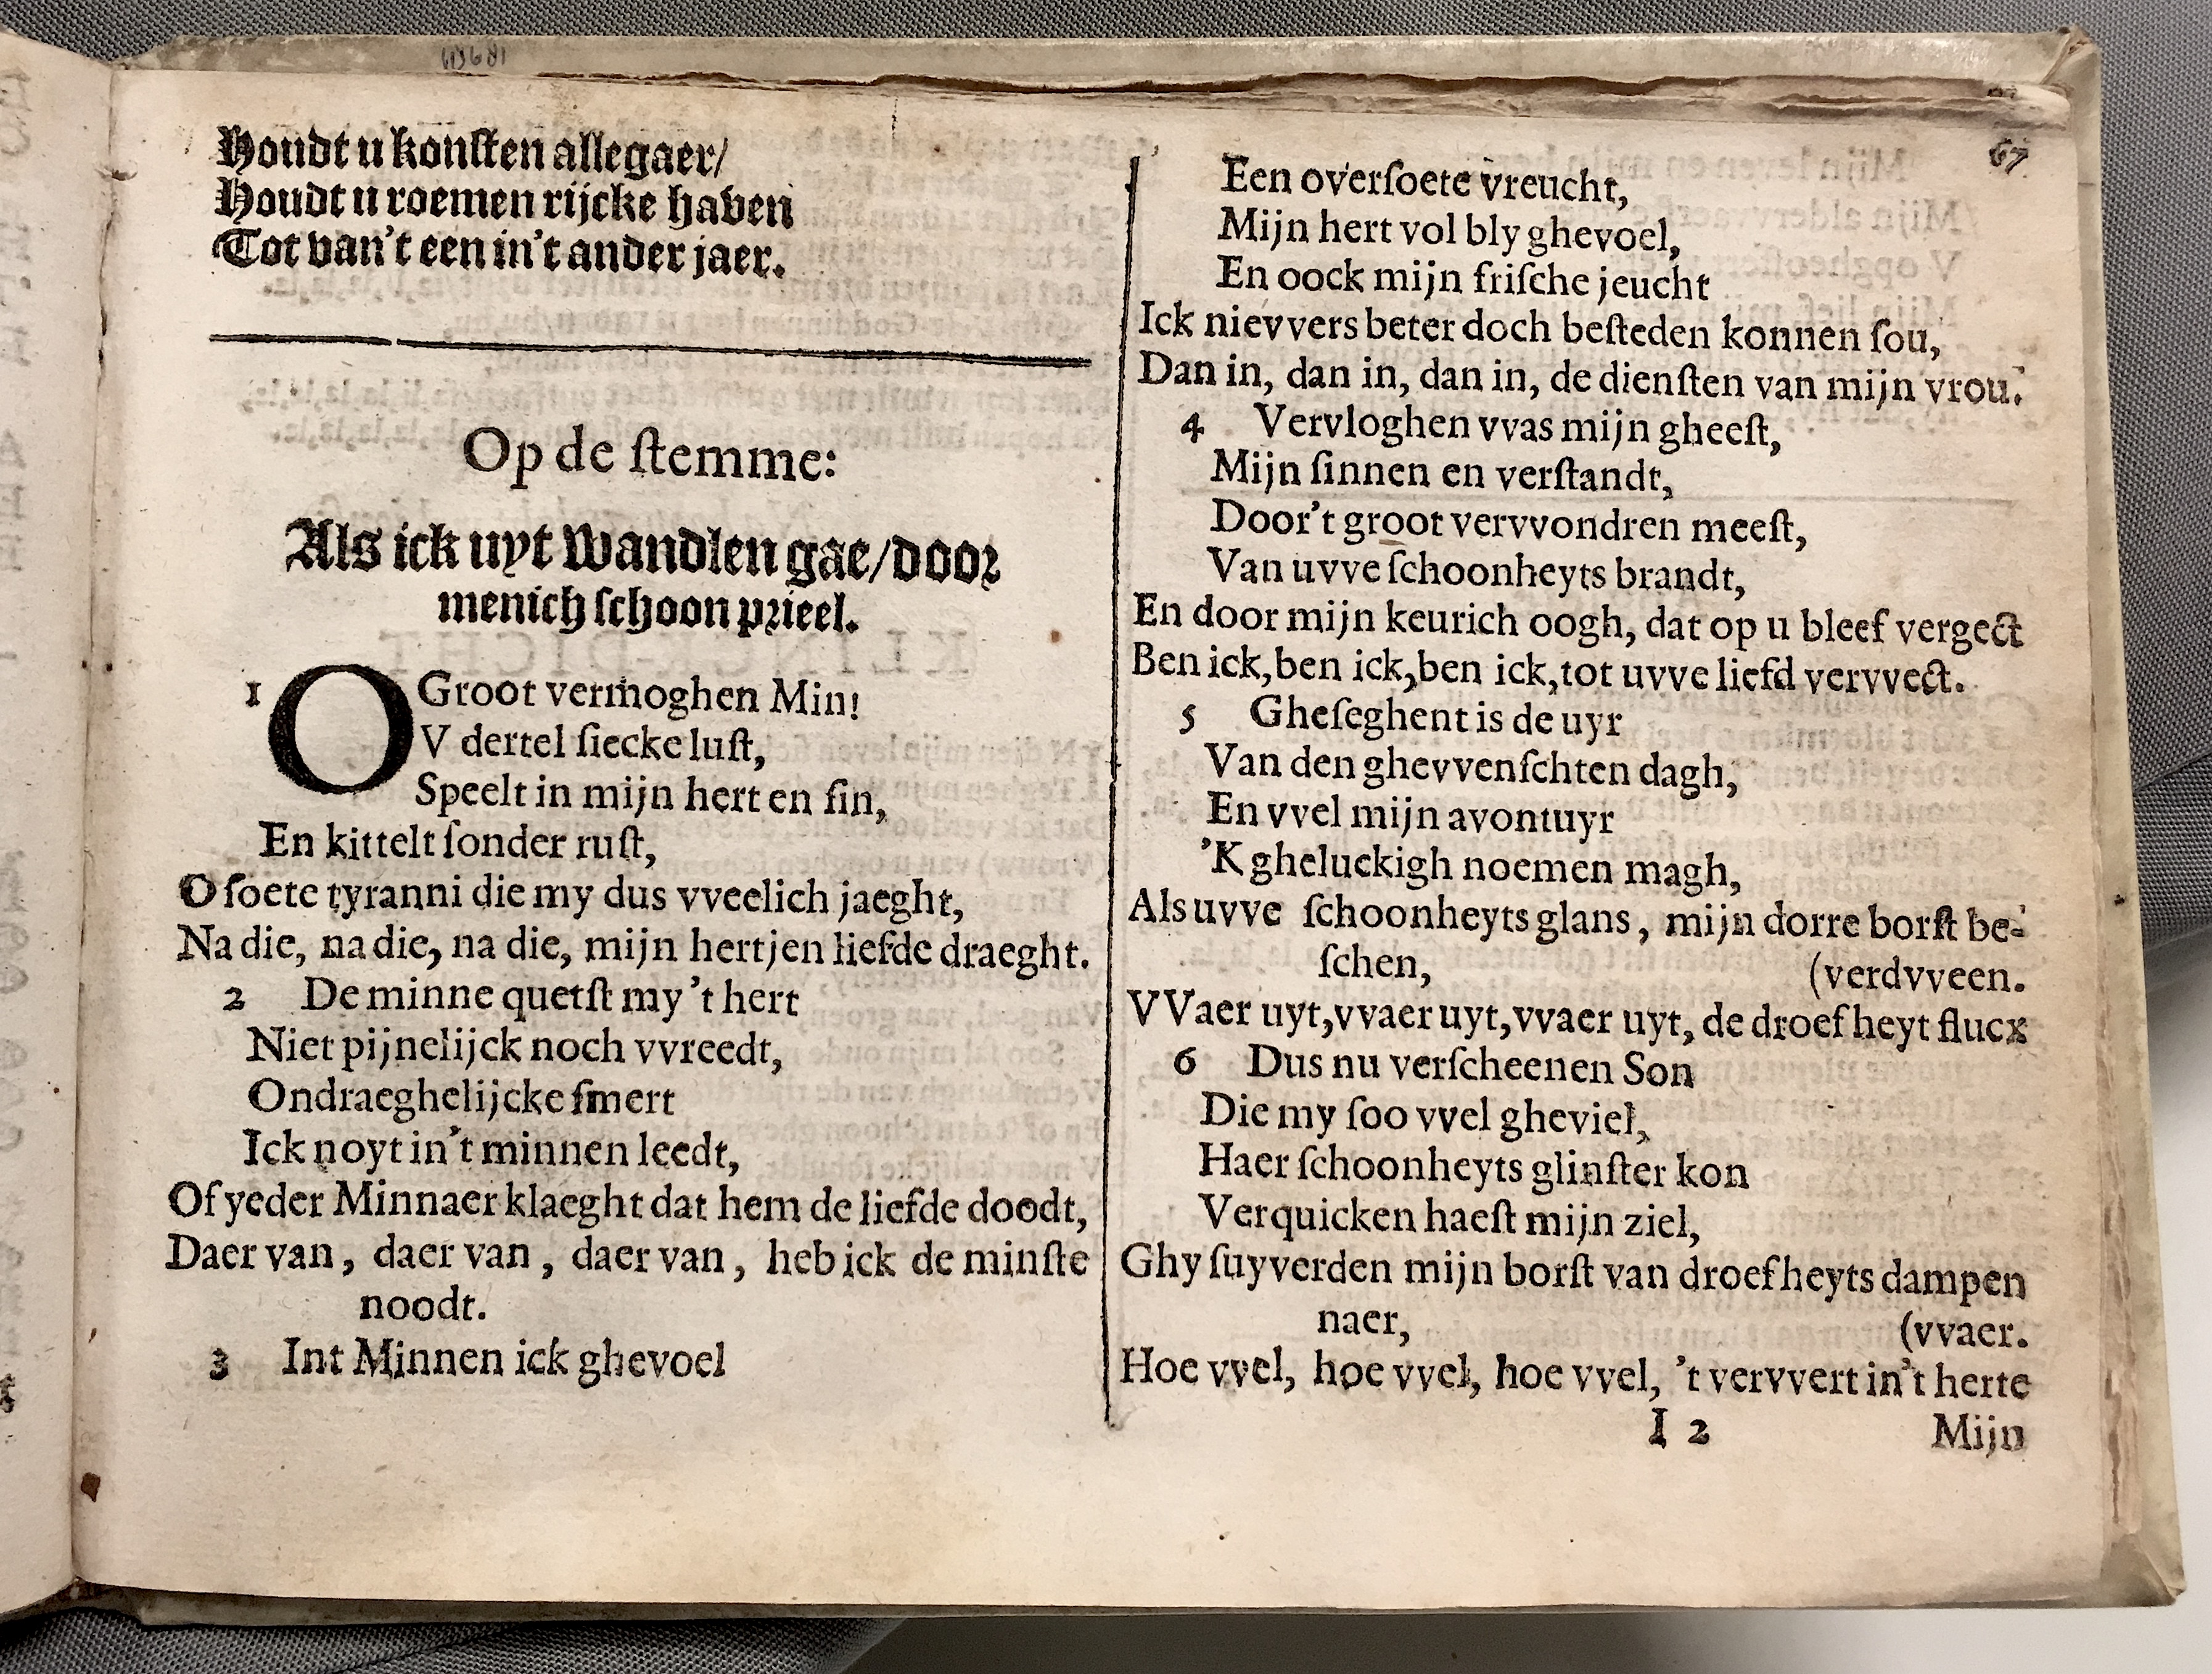 Houdt u konſten allegaer/
Houdt u roemen rijcke haven
Tot van't een in't ander jaer.
Op de ſtemme:
Als ick uyt Wandlen gae/door
menich ſchoon prieel.
1 O Groot vermoghen Min!
V dertel ſiecke luſt,
Speelt in mijn hert en ſin,
En kittelt ſonder ruſt,
O ſoete tyranni die my dus vveelich jaeght,
Na die, na die, na die, mijn hertjen liefde draeght.
2 De minne quetſt my 't hert
Niet pijnelijck noch vvreedt,
Ondraeghelijcke ſmert
Ick noyt in't minnen leedt,
Of yeder Minnaer klaeght dat hem de liefde doodt,
Daer van, daer van, daer van, heb ick de minſte
noodt.
3 Int Minnen ick ghevoel
67
Een overſoete vreucht,
Mijn hert vol bly ghevoel,
En oock mijn friſche jeucht
Ick nievvers beter doch beſteden konnen ſou,
Dan in, dan in, dan in, de dienſten van mijn vrou.
4 Vervloghen vvas mijn gheeſt,
Mijn ſinnen en verſtandt,
Door't groot vervvondren meeſt,
Van uvve ſchoonheyts brandt,
En door mijn keurich oogh, dat op u bleef vergect
Ben ick, ben ick, ben ick, tot uvve liefd vervvect.
5 Gheſeghent is de uyr
Van den ghevvenſchten dagh,
En vvel mijn avontuyr
'K gheluckigh noemen magh,
Als uvve ſchoonheyts glans, mijn dorre borſt be-
ſchen, (verdvveen.
VVaer uyt, vvaer uyt, vvaer uyt, de droefheyt flucx
6 Dus nu verſcheenen Son
Die my ſoo vvel gheviel,
Haer ſchoonheyts glinſter kon
Verquicken haeſt mijn ziel,
Ghy ſuyverden mijn borſt van droefheyts dampen
naer, (vvaer.
Hoe vvel, hoe vvel, hoe vvel, 't vervvert in't herte
I 2 Mijn